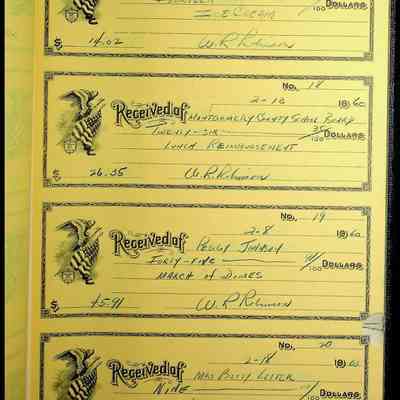 Ice Cream 100 Dollars
$ 14.02 W.R. Robinson
No. 18
2-18 1960
Received of Montgomery County School Board
Twenty-six 35/100 Dollars
Lunch Reimbursement
$ 26.35 W.R. Robinson
No. 19
2-8 1960
Received of Peggy
Forty-five 91/100 Dollars
March of Dimes
$ 45.91 W.R. Robinson
No. 20
2-18 1960
Received of Mrs Betty Lester
Nine Dollars